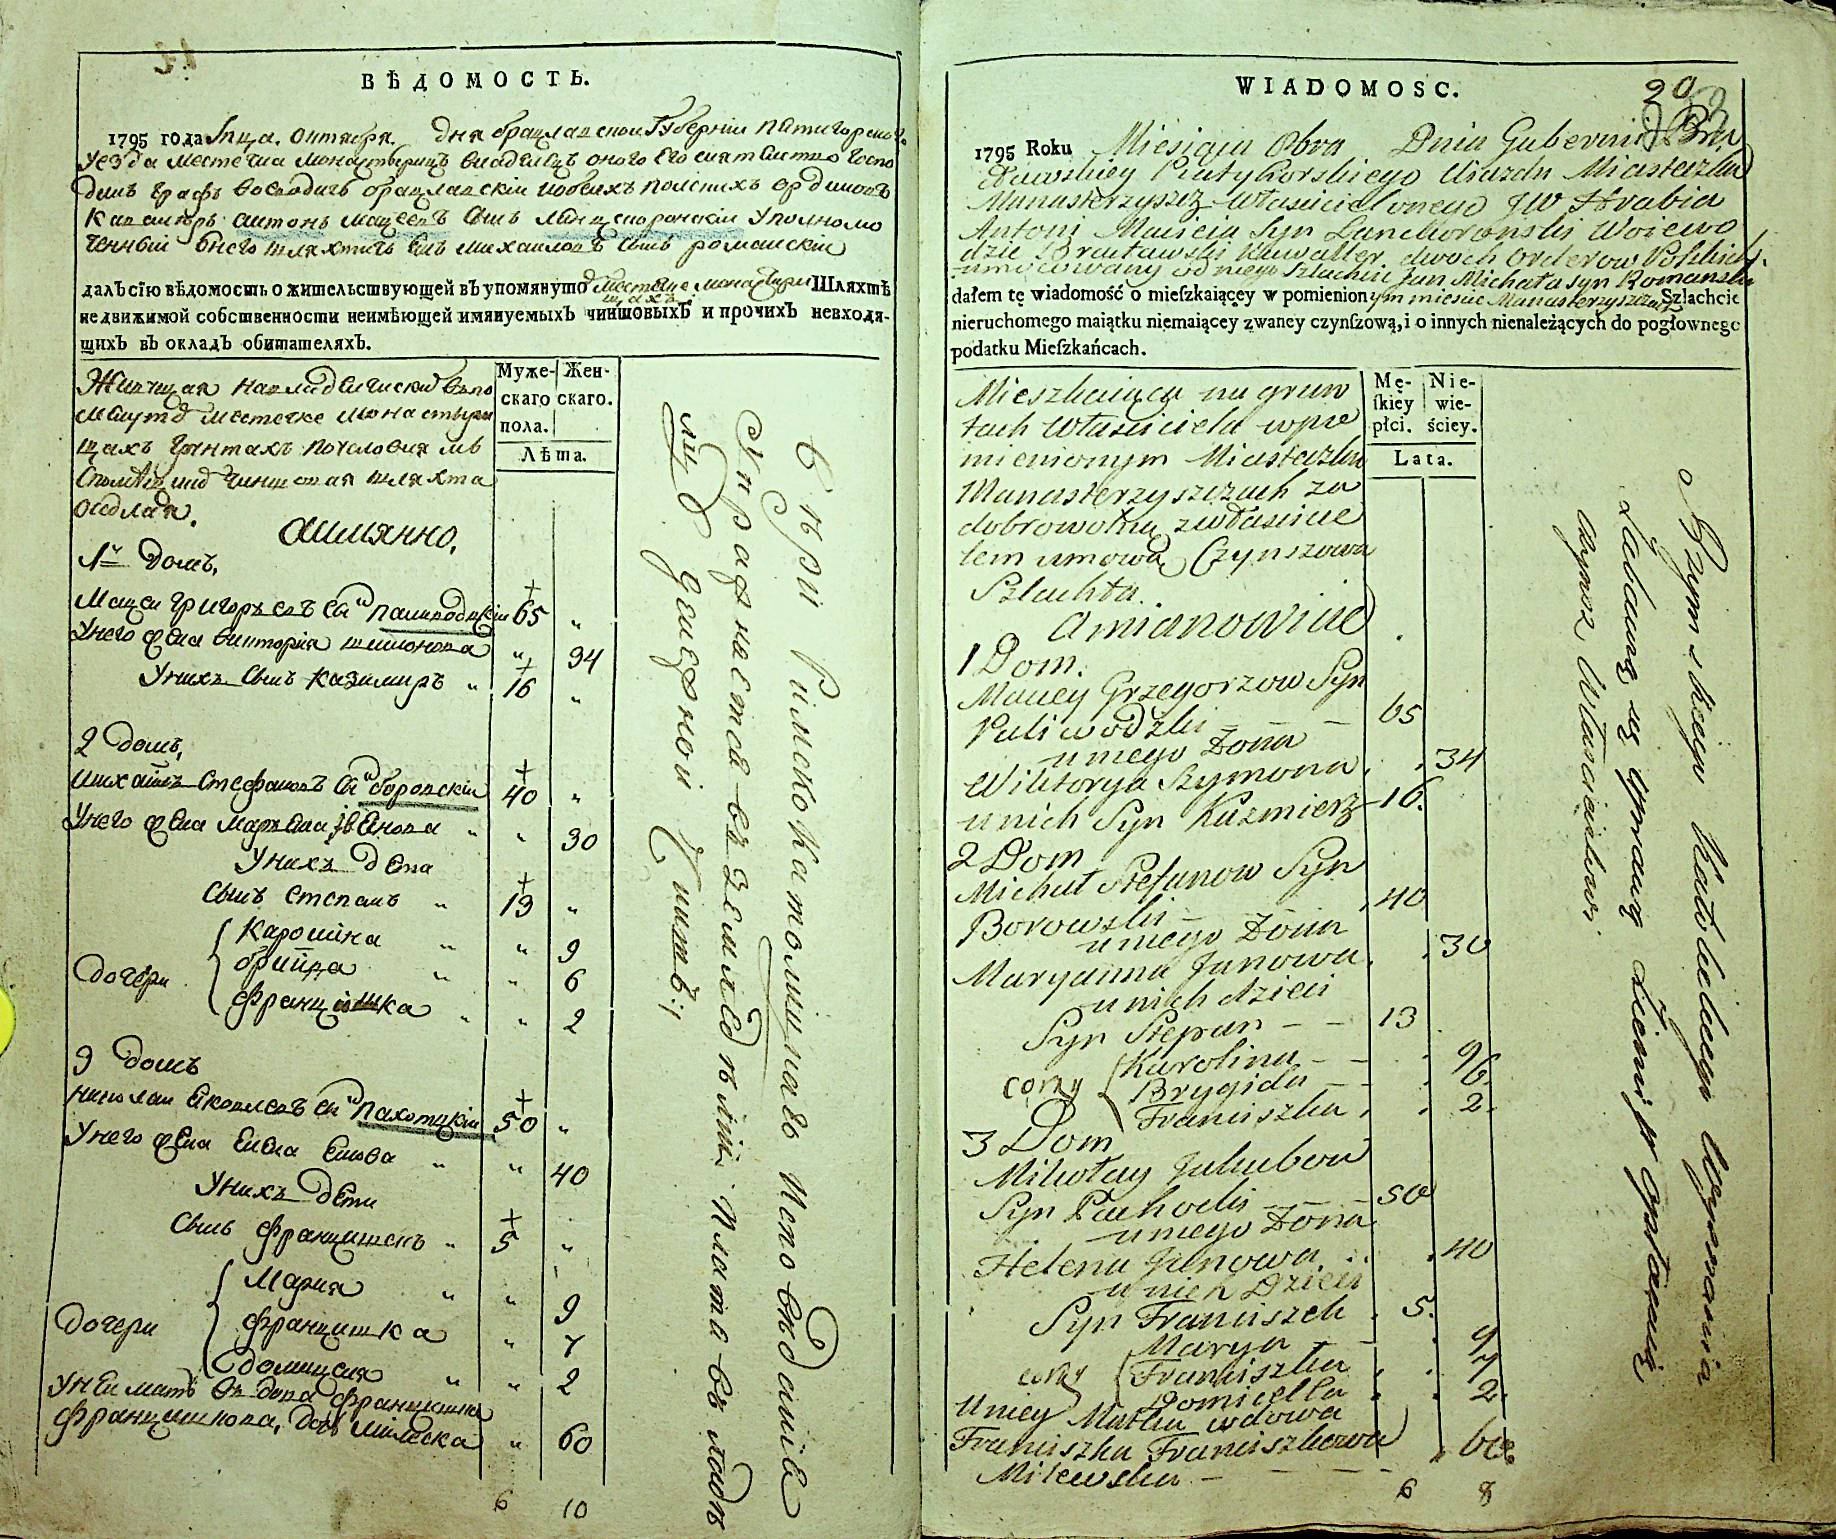 ВѢДОМОСТЬ.
1795 года Мца Октября Дня брацлавской Губерніи Пятигорского
уезда местечка Монастырищъ владелецъ оного Его сиятелство Госпо
динъ Графъ воевода брацлавскіи и обеихъ полскихъ ординовъ
Кавалеръ Антонъ Мацеевъ сынъ Ланцкоронскіи уполномо
ченный отнего шляхтичъ Янъ Михайловъ сынъ романскіи
далъ сію вѣдомость о жительствующей въ упомянуто местечке Монастыри
щахъ Шляхтѣ
недвижимой собственности неимѣющей имянуемыхъ чиншовыхъ и прочихъ невходя-
щихъ въ окладъ обитателяхъ.
Муже-
скаго
пола.
Жен-
скаго.
Лѣта.
Живущая навладелческихъ впо
мянутомъ местечке Монастыри
щахъ грунтахъ
чиншовая шляхта
оседлая.
Аимянно,
1й Домъ,
Мацей Григорьевъ сынъ Паливодзкіи + 65 "
Унего жена Виктория шимонова " 34
Унихъ сынъ Казимиръ " + 16 "
2 домъ,
Михайлъ Стефановъ сынъ боровскіи + 40 "
Унего жена Марьяна Ивановa " " 30
Унихъ дети
сынъ Степанъ " + 13 "
Дочери
Каролина " " 9
бригида " " 6
Францишка " " 2
3 домъ
Николай Яковлевъ сынъ Пахотцкіи + 50 "
Унего жена Елена Янова " " 40
Унихъ дети
Сынъ Францишекъ " + 5 "
Дочери
Мария " " 9
Францишка " 7
Домицеля " " 2
Унеи мать вдова Францишка
Францишкова, Милевска " 60
6 10
Вѣры Римско Католицкаго Исповеданіе
Упражнаются вземледѣліи Плата владѣ
лцу денежной Чиншъ;
WIADOMOSC.
20
1795 Roku Miesiąca Obra Dnia Gubernii Bra
cławskiey Piatyhorskiego Uiazdu Miasteczka
Manasterzyszcz Własciciel onego JW Hrabia
Antoni Macieia Syn Lanckoronski Woiewo
dzie Bracławski Kawaller dwoch Orderow Polskich
umocowany od niego Szlachcic Jan Michała syn Romanski
dałem tę wiadomość o mieſzkaiącey w pomienionym miescie Manasterzyszczach Szlachcie
nieruchomego maiątku niemaiącey zwaney czynſzową, i o innych nienależących do pogłownego
podatku Mieſzkańcach.
Mę-
ſkiey
płci.
Nie-
wie-
ściey.
Lata.
Mieszkaiąca na grun
tach Własciciela wpo
mienionym Miasteczku
Manasterzyszczach za
dobrowolną zwłascicie
lem umową Czynszowa
Szlachta.
Amianowicie
1 Dom.
Maciey Grzegorzow Syn
Paliwodzki - - - 65
u niego Żona
Wiktorya Szymona . . 34
u nich Syn Kazmierz - 16.
2 Dom
Michał Stefanow Syn
Borowski - - - 40
u niego Żona
Maryanna Janowa . . 30
u nich dzieci
Syn Stepan - - 13
corky
Karolina - - . . 9
Brygida - - . . 6.
Franciszka . . . 2.
3 Dom
Mikołay Jakubow
Syn Pachocki - - - 50
u niego Żona
Helena Janowa . . 40
u nich Dzieci
Syn Franciszek . 5.
corky
Marya - . 9
Franciszka . . 7
Domicella . . 2.
Uniey Matka wdowa
Franciszka Franciszkowa . 60.
Milewska - - - -
6 8
Rzymskiego Katolickiego Wyznania
Zabawią się uprawą Ziemi, y opłacaią
Czynsz Włascicielowi.